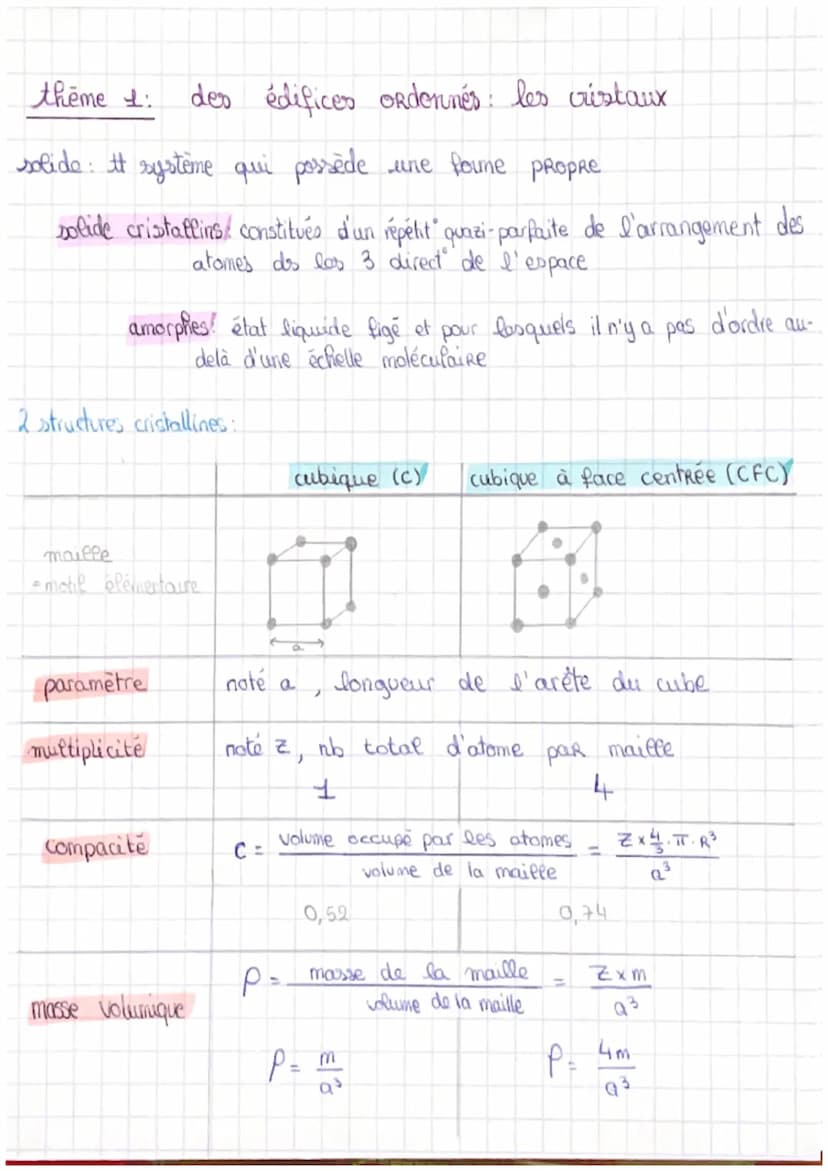 thème 1: des édifices ordonnés: les cristaux
solide: # système qui possède une forme propre
solide cristallins: constitués d'un répétit° quazi-parfaite de l'arrangement des
atomes ds les 3 direct° de l'espace
amorphes: état liquide figé et pour lesquels il n'y a pas d'ordre au-
delà d'une échelle moléculaire
2 structures cristallines:
cubique (C) cubique à face centrée (CFC)
maille
= motif élémentaire
a
paramètre noté a, longueur de l'arête du cube
multiplicité noté Z, nb total d'atome par maille
1 4
compacité C = volume occupé par les atomes / volume de la maille = Z × 4/3 . π . R³ / a³
0,52 0,74
masse volumique ρ = masse de la maille / volume de la maille = Z × m / a³
ρ = m / a³ ρ = 4m / a³